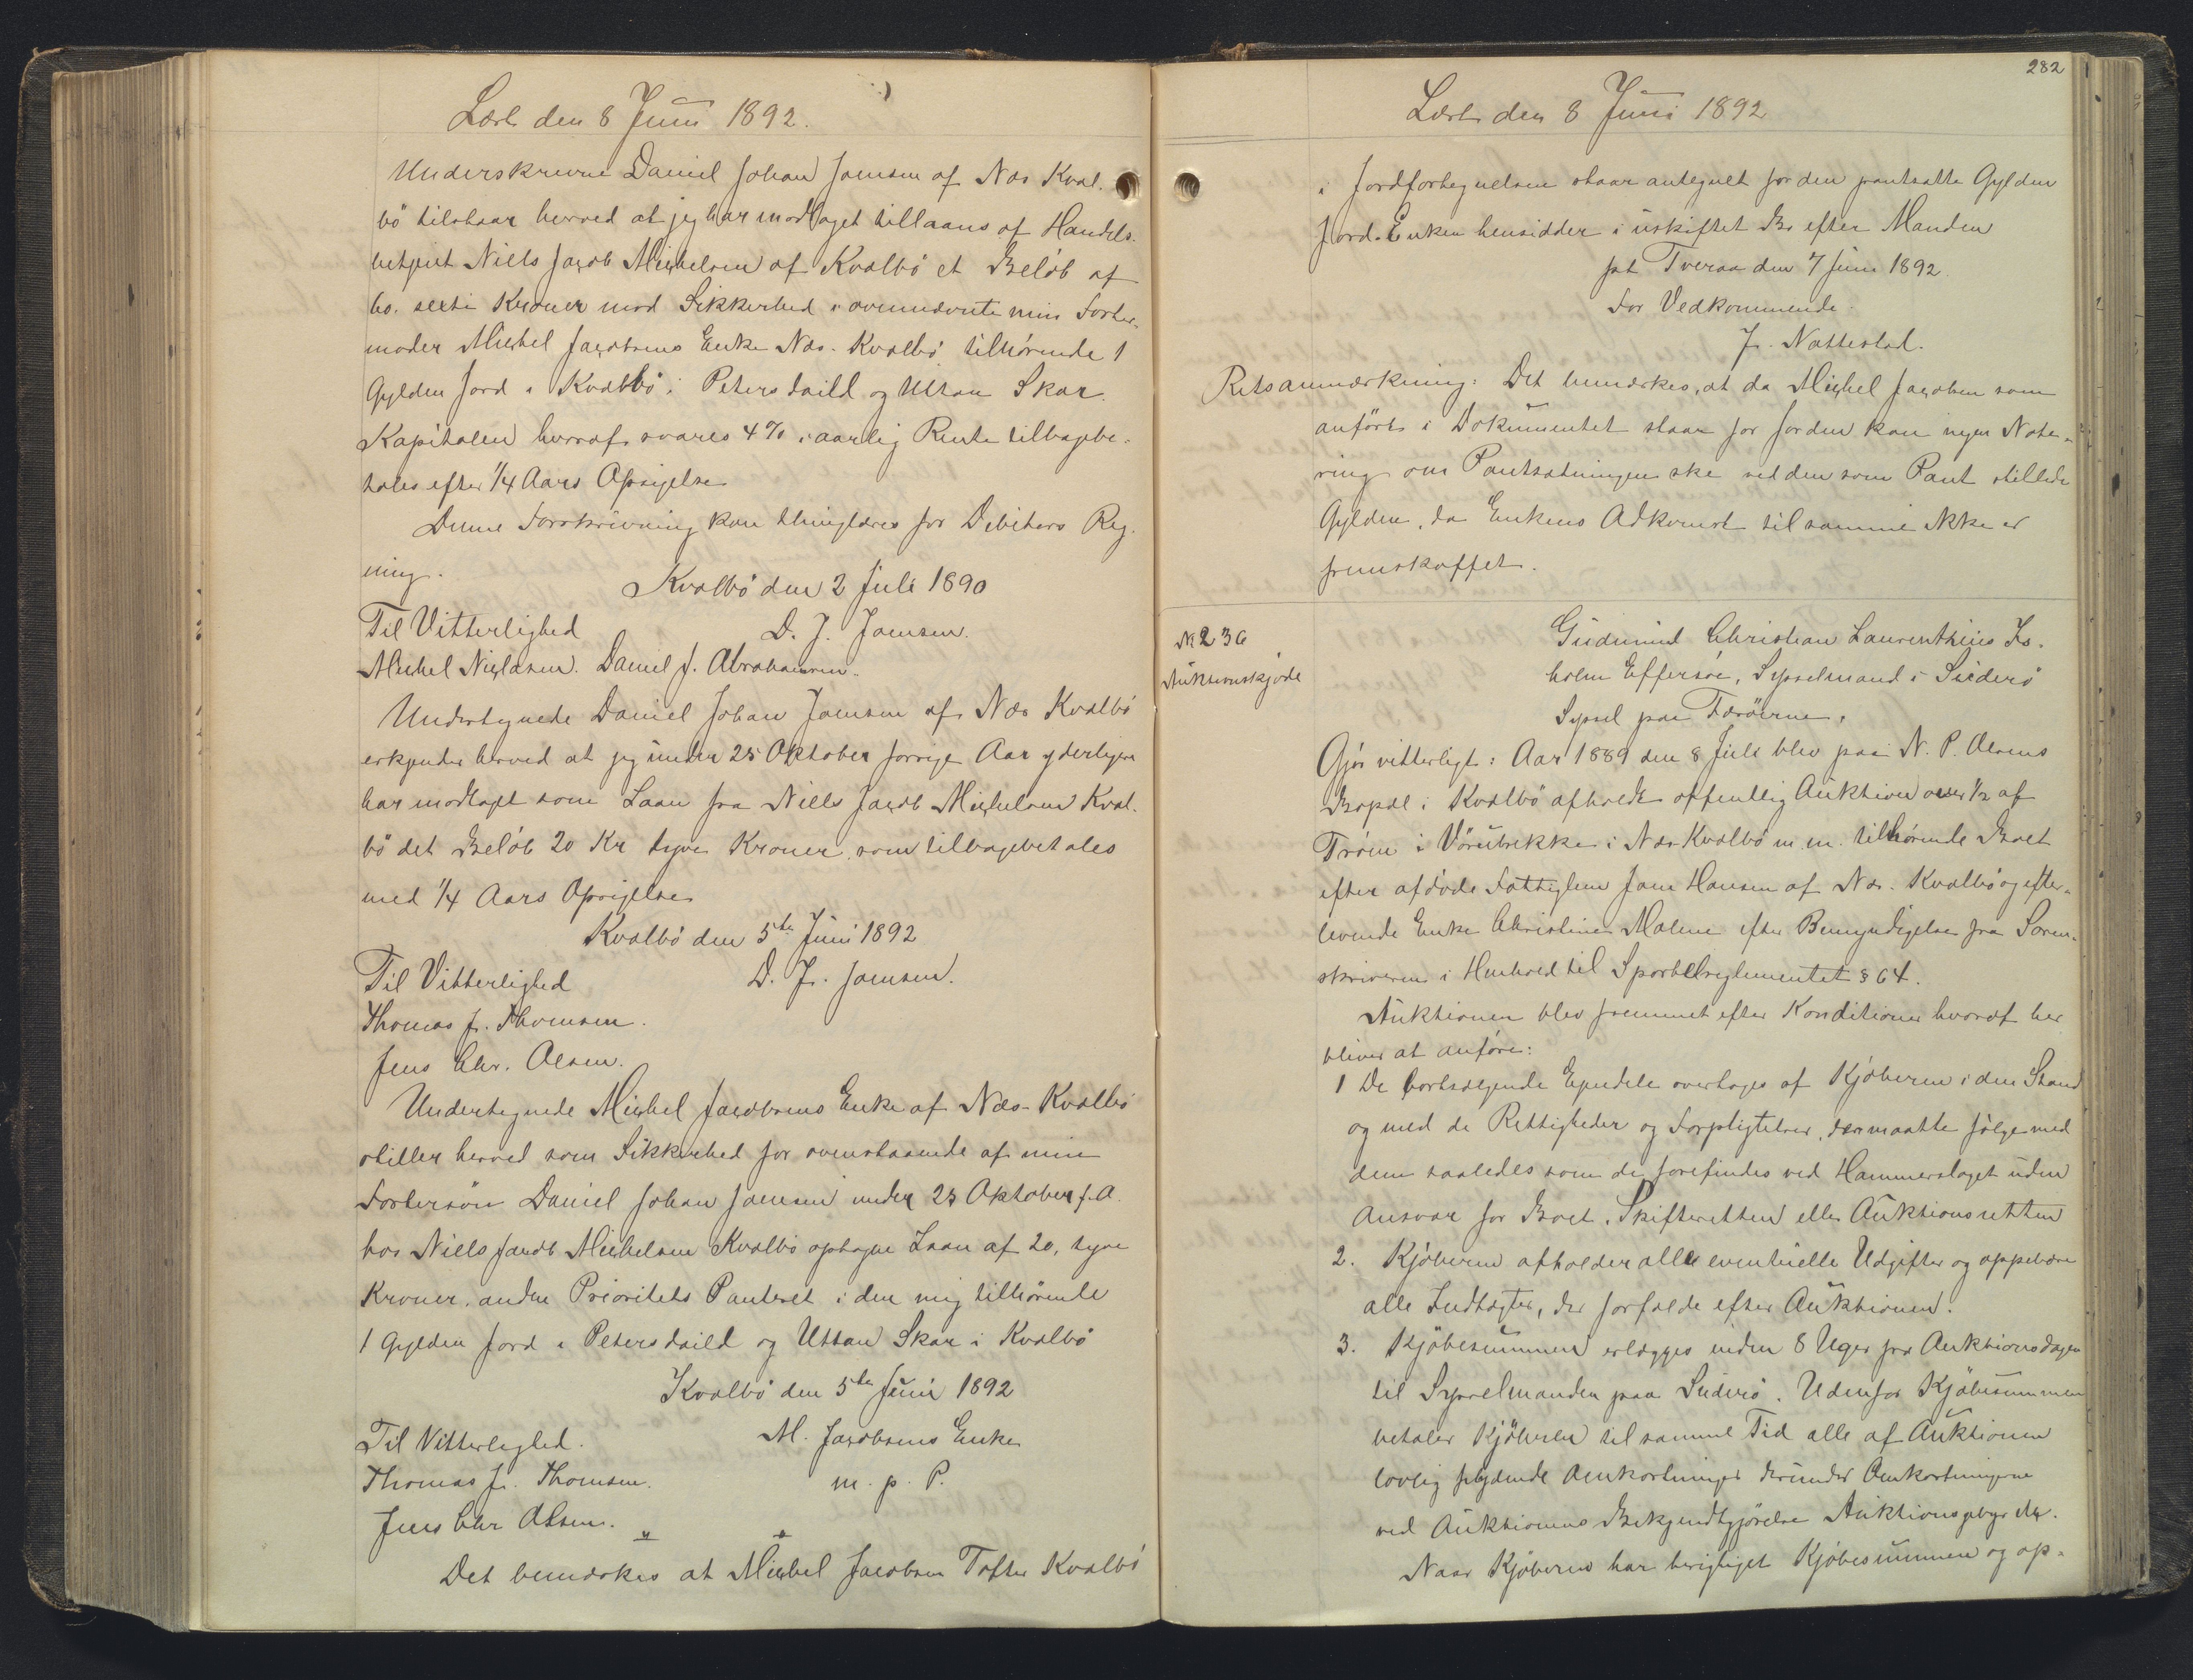 Læst den 8 Juni 1892.
Underskrevne Daniel Johan Joensen af Næs Kval-
bö tilstaar herved at jeg har modtaget tillaans af Handels-
betjent Niels Jacob Michelsen af Kvalbö et Belöb af
60. sexti Kroner mod Sikkerhed i ovennævnte min Foster-
moder Michel Jacobsens Enke Næs-Kvalbö tilhörende 1
Gylden Jord i Kvalbö i Petersdaild og Uttan Skar.
Kapitalen hvoraf svares 4% i aarlig Rente tilbagebe-
tales efter 1/4 Aars Opsigelse
Denne Forskrivning kan thinglæses for Debitors Reg-
ning.
Kvalbö den 2 Juli 1890
Til Vitterlighed D. J. Joensen.
Michel Niclasen. Daniel J. Abrahamsen.
Undertegnede Daniel Johan Joensen af Næs Kvalbö
erkjender herved at jeg under 25 Oktober forrige Aar yderligere
har modtaget som Laan fra Niels Jacob Michelsen Kval-
bö det Belöb 20 Kr tyve Kroner som tilbagebetales
med 1/4 Aars Opsigelse
Kvalbö den 5te Juni 1892
Til Vitterlighed D. J. Joensen.
Thomas J. Thomsen.
Jens Chr. Olsen.
Undertegnede Michel Jacobsens Enke af Næs-Kvalbö
stiller herved som Sikkerhed for ovenstaaende af min
Fostersön Daniel Johan Joensen under 25 Oktober f. A.
hos Niels Jacob Michelsen Kvalbö optagne Laan af 20, tyve
Kroner, anden Prioritets Panteret i den mig tilhörende
1 Gylden Jord i Petersdaild og Uttan Skar i Kvalbö
Kvalbö den 5te Juni 1892
Til Vitterlighed. M. Jacobsens Enke
Thomas J. Thomsen. m. p. P.
Jens Chr Olsen.
Det bemærkes at Michel Jacobsen Tofte Kvalbö
282
Læst den 8 Juni 1892
i Jordfortegnelsen staar antegnet for den pantsatte Gylden
Jord. Enken hensidder i uskiftet Bo efter Manden
pt Tveraa den 7 Juni 1892.
For Vedkommende.
J. Nattestad.
Retsanmærkning: Det bemærkes, at da Michel Jacobsen som
anfört i Dokumentet staar for Jorden kan ingen Note-
ring om Pantsætningen ske ved den som Pant stillede
Gylden, da Enkens Adkomst til samme ikke er
fremskaffet.
№ 236
Auktionsskjöde
Gudmund Christian Laurenthius Is-
holm Effersöe, Sysselmand i Süderö
Syssel paa Færöerne,
Gjör vitterligt: Aar 1889 den 8 Juli blev paa N. P. Olsens
Bopæl i Kvalbö afholdt offentlig Auktion over 1/2 af
Tröen i Vörubrekke i Næs Kvalbö m. m. tilhörende Boet
efter afdöde Fattiglem Joen Hansen af Næs-Kvalbö og efter-
levende Enke Christine Malene efter Bemyndigelse fra Soren-
skriveren i Henhold til Sportelreglementet § 64.
Auktionen blev fremmet efter Konditioner hvoraf her
bliver at anföre:
1 De bortsælgende Ejendele overtages af Kjöberen i den Stand
og med de Rettigheder og Forpligtelser, der maatte fölge med
dem saaledes som de forefindes ved Hammerslaget uden
Ansvar for Boet, Skifteretten eller Auktionsretten
2. Kjöberen afholder alle eventuelle Udgifter og oppebære
alle Indtægter, der forfalde efter Auktionen.
3. Kjöbesummen erlægges inden 8 Uger fra Auktionsdagen
til Sysselmanden paa Suderö. Udenfor Kjöbesummen
betaler Kjöberen til samme Tid alle af Auktionen
lovlig flydende Omkostninger derunder Omkostningerne
ved Auktionens Bekjendtgjörelse Auktionsgebyr
Naar Kjöberen har berigtiget Kjöbesummen og op-